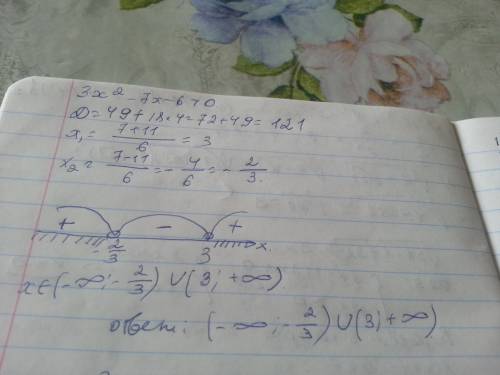 3x² - 7x - 6 > 0
D = 49 + 18 · 4 = 72 + 49 = 121
x₁ = (7+11)/6 = 3
x₂ = (7-11)/6 = -4/6 = -2/3.
+ - +
-2/3 3 x.
x ∈ (-∞; -2/3) ∪ (3; +∞)
ответ: (-∞; -2/3) ∪ (3; +∞)
1